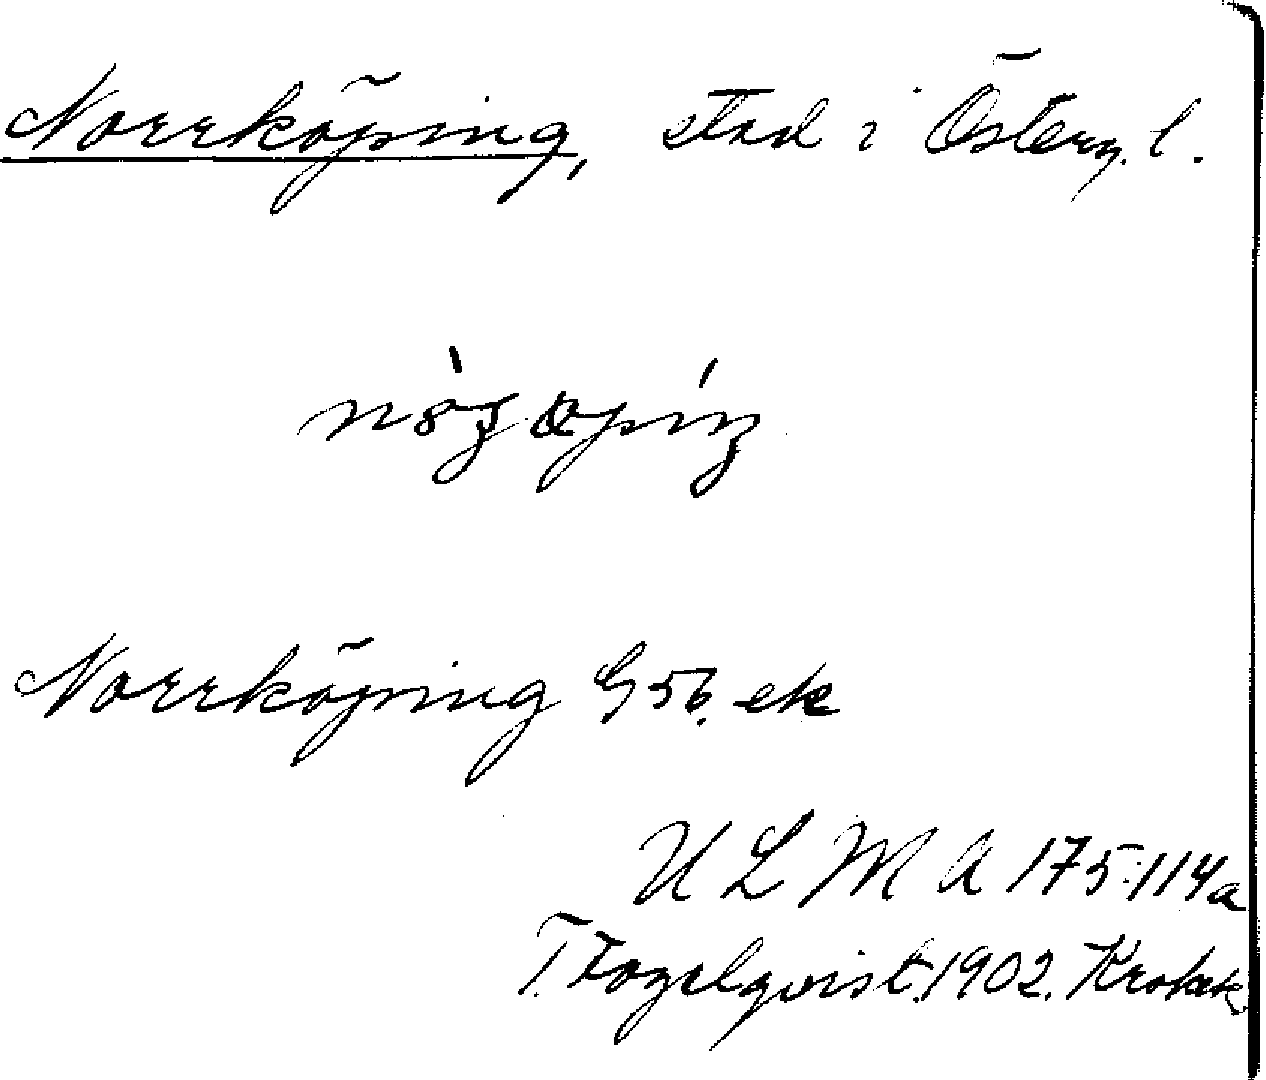 Norrköping, stad i Österg. l.
Norrköping G 56. ek
U L M A 175:114a
T. Fogelqvist. 1902. Krokek